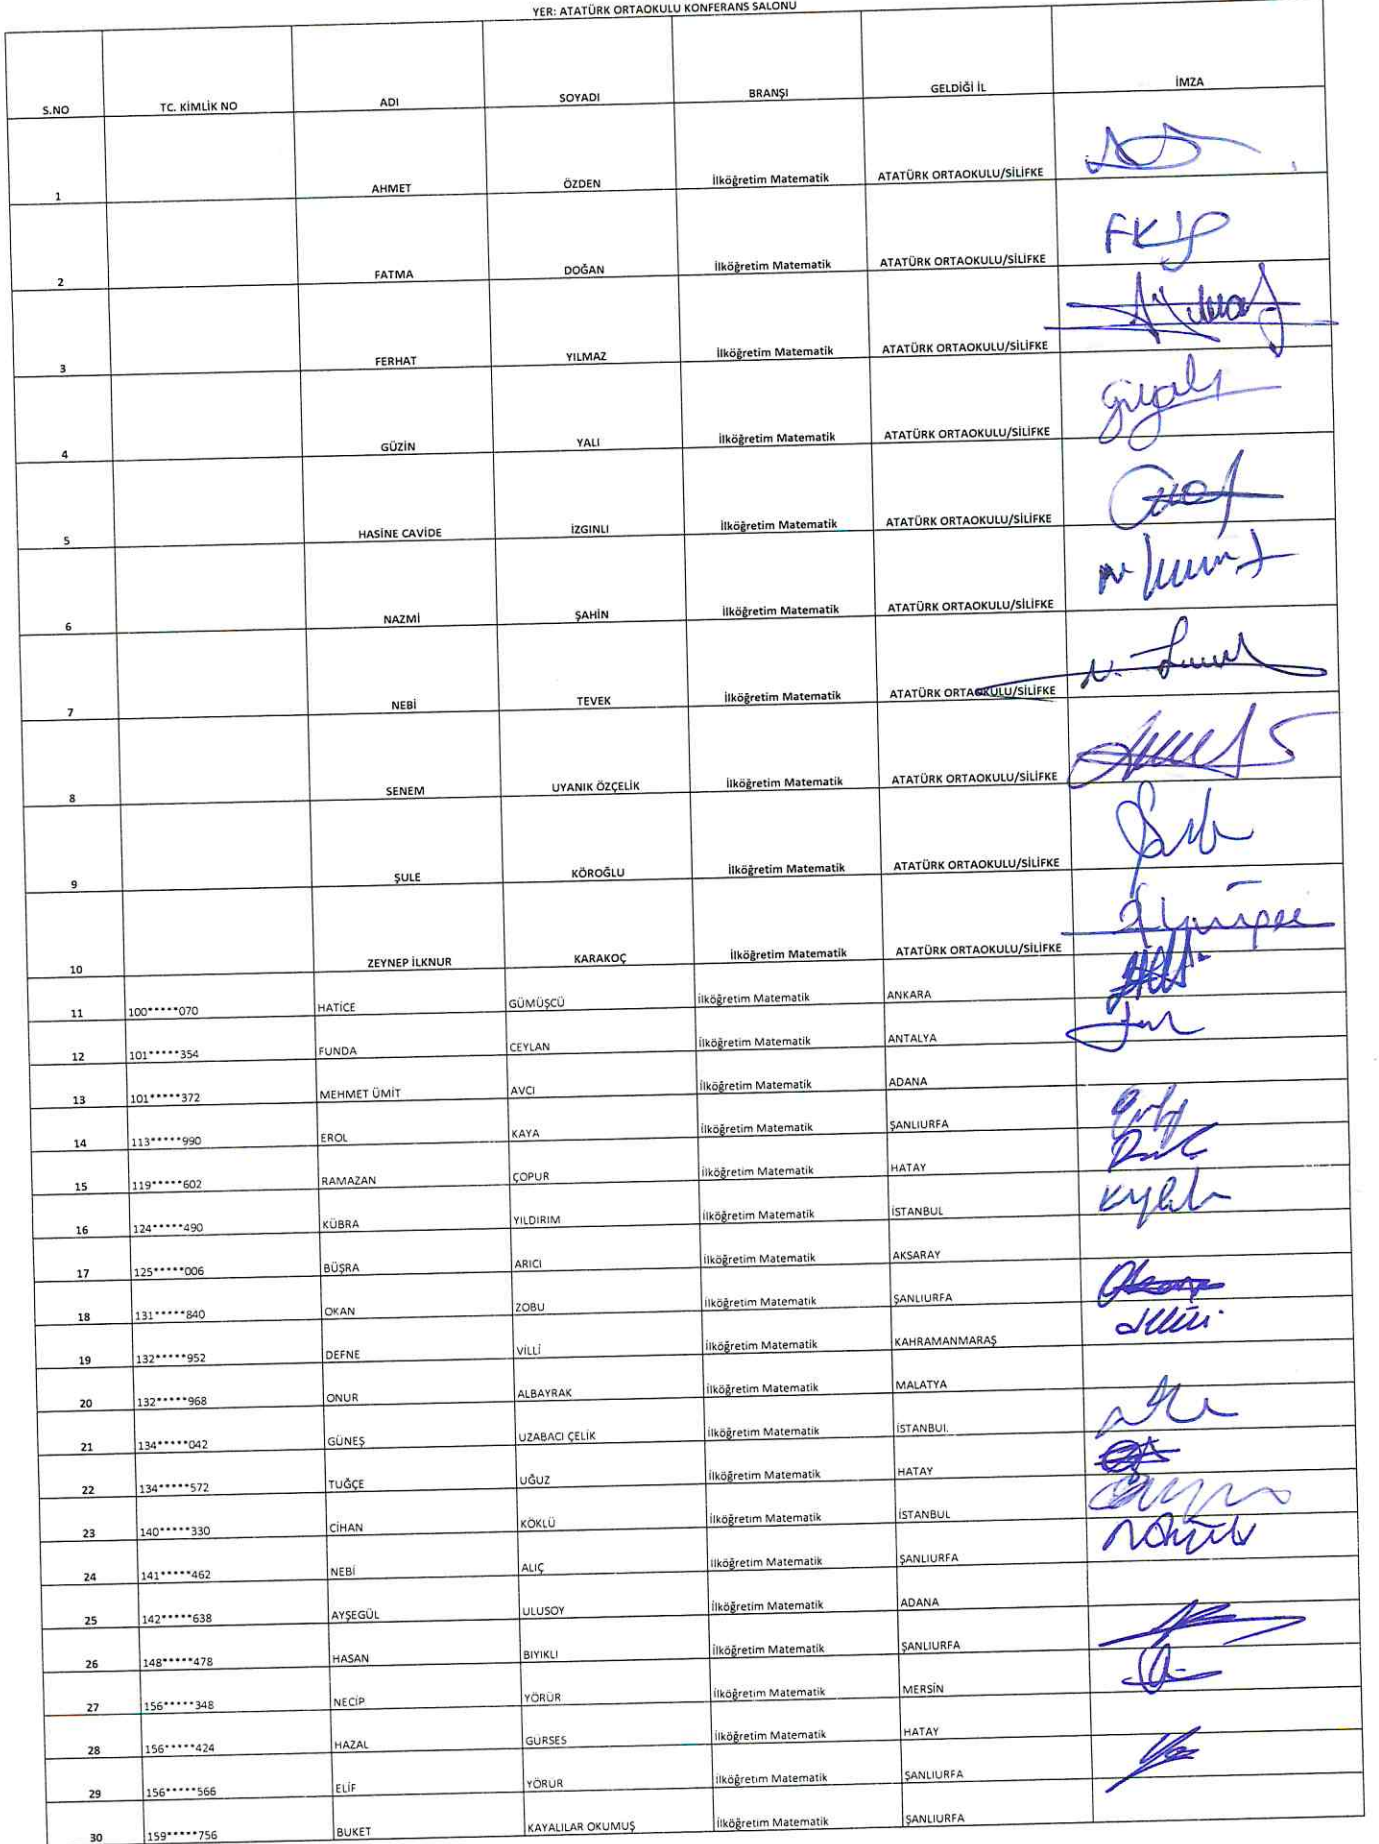 YER: ATATÜRK ORTAOKULU KONFERANS SALONU
S.NO TC. KİMLİK NO ADI SOYADI BRANŞI GELDİĞİ İL İMZA
1 AHMET ÖZDEN İlköğretim Matematik ATATÜRK ORTAOKULU/SİLİFKE
2 FATMA DOĞAN İlköğretim Matematik ATATÜRK ORTAOKULU/SİLİFKE
3 FERHAT YILMAZ İlköğretim Matematik ATATÜRK ORTAOKULU/SİLİFKE
4 GÜZİN YALI İlköğretim Matematik ATATÜRK ORTAOKULU/SİLİFKE
5 HASİNE CAVİDE İZGINLI İlköğretim Matematik ATATÜRK ORTAOKULU/SİLİFKE
6 NAZMİ ŞAHİN İlköğretim Matematik ATATÜRK ORTAOKULU/SİLİFKE
7 NEBİ TEVEK İlköğretim Matematik ATATÜRK ORTAOKULU/SİLİFKE
8 SENEM UYANIK ÖZÇELİK İlköğretim Matematik ATATÜRK ORTAOKULU/SİLİFKE
9 ŞULE KÖROĞLU İlköğretim Matematik ATATÜRK ORTAOKULU/SİLİFKE
10 ZEYNEP İLKNUR KARAKOÇ İlköğretim Matematik ATATÜRK ORTAOKULU/SİLİFKE
11 100*****070 HATİCE GÜMÜŞCÜ İlköğretim Matematik ANKARA
12 101*****354 FUNDA CEYLAN İlköğretim Matematik ANTALYA
13 101*****372 MEHMET ÜMİT AVCI İlköğretim Matematik ADANA
14 113*****990 EROL KAYA İlköğretim Matematik ŞANLIURFA
15 119*****602 RAMAZAN ÇOPUR İlköğretim Matematik HATAY
16 124*****490 KÜBRA YILDIRIM İlköğretim Matematik İSTANBUL
17 125*****006 BÜŞRA ARICI İlköğretim Matematik AKSARAY
18 131*****840 OKAN ZOBU İlköğretim Matematik ŞANLIURFA
19 132*****952 DEFNE VİLLİ İlköğretim Matematik KAHRAMANMARAŞ
20 132*****968 ONUR ALBAYRAK İlköğretim Matematik MALATYA
21 134*****042 GÜNEŞ UZABACI ÇELİK İlköğretim Matematik İSTANBUL
22 134*****572 TUĞÇE UĞUZ İlköğretim Matematik HATAY
23 140*****330 CİHAN KÖKLÜ İlköğretim Matematik İSTANBUL
24 141*****462 NEBİ ALIÇ İlköğretim Matematik ŞANLIURFA
25 142*****638 AYŞEGÜL ULUSOY İlköğretim Matematik ADANA
26 148*****478 HASAN BIYIKLI İlköğretim Matematik ŞANLIURFA
27 156*****348 NECİP YÖRÜR İlköğretim Matematik MERSİN
28 156*****424 HAZAL GÜRSES İlköğretim Matematik HATAY
29 156*****566 ELİF YÖRÜR İlköğretim Matematik ŞANLIURFA
30 159*****756 BUKET KAYALILAR OKUMUŞ İlköğretim Matematik ŞANLIURFA